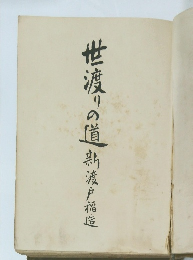 世渡りの道
新渡戸稲造